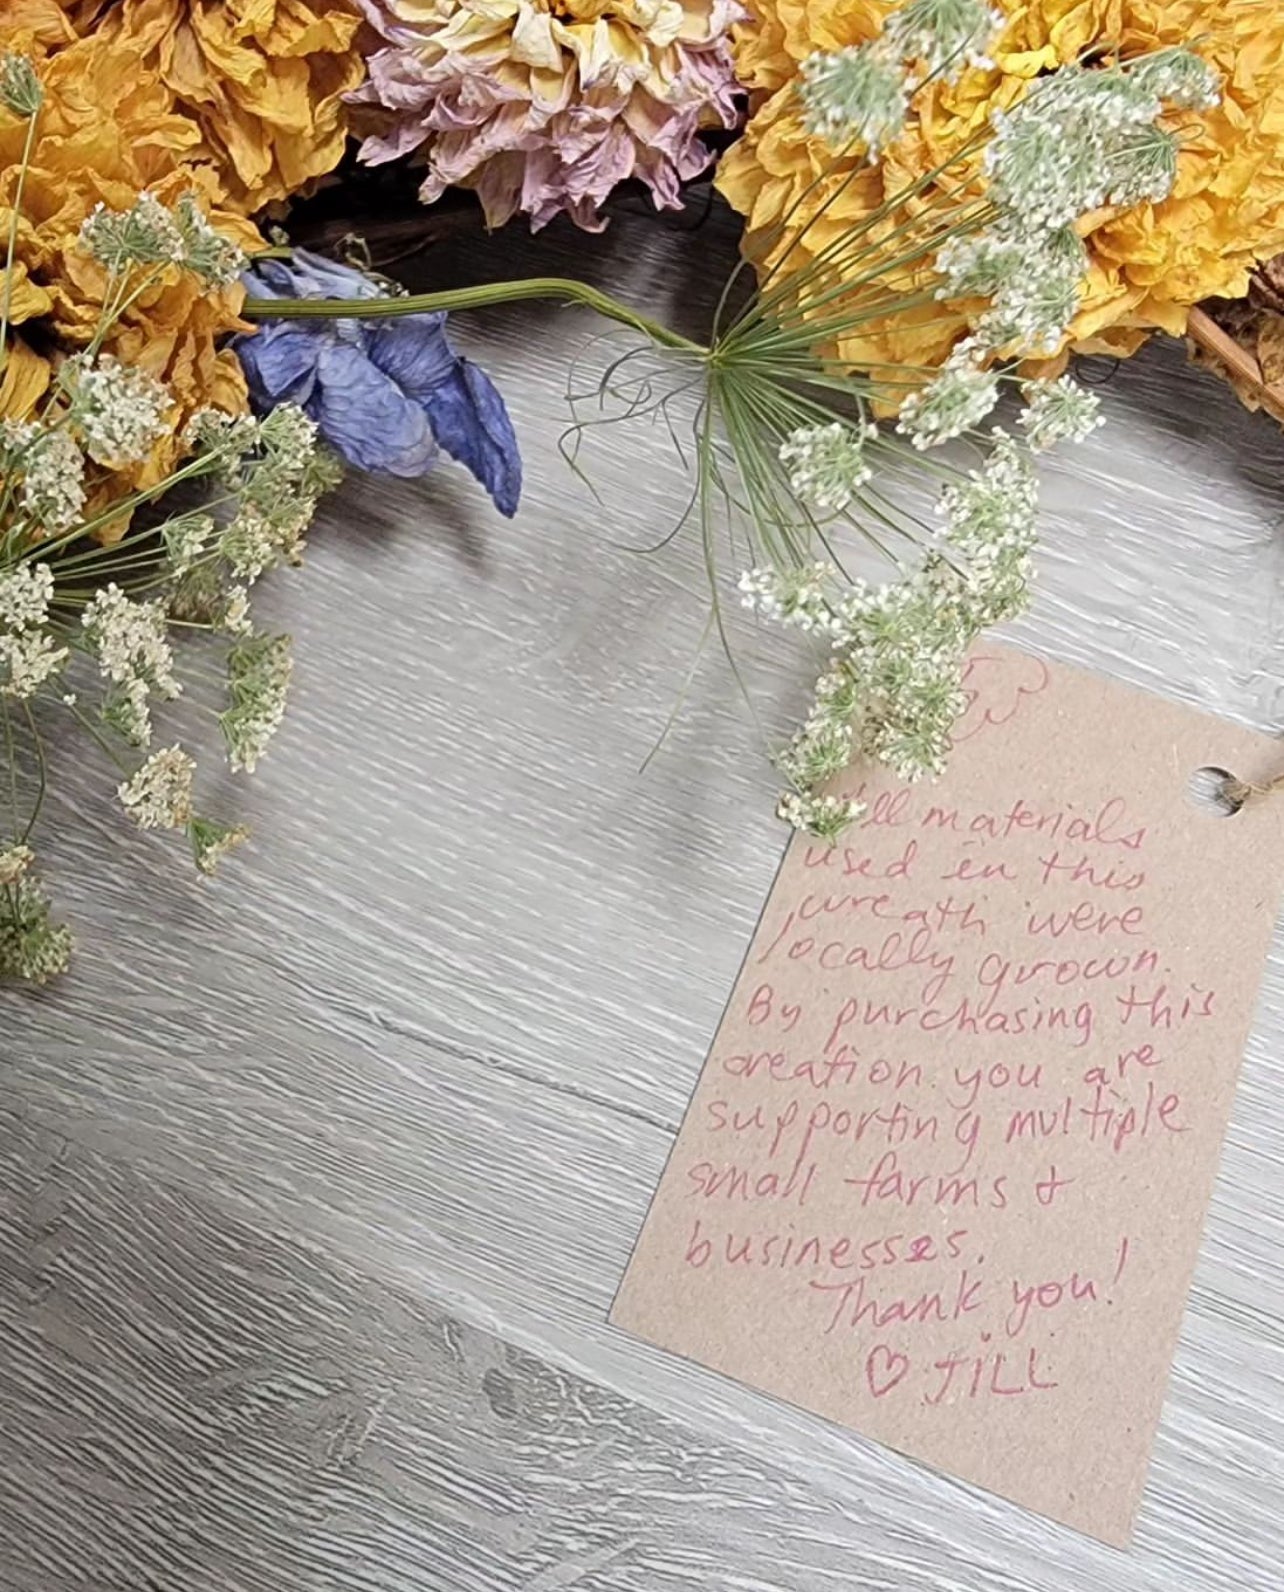 All materials
used in this
wreath were
locally grown.
By purchasing this
creation you are
supporting multiple
small farms &
businesses.
Thank you!
♡ JILL